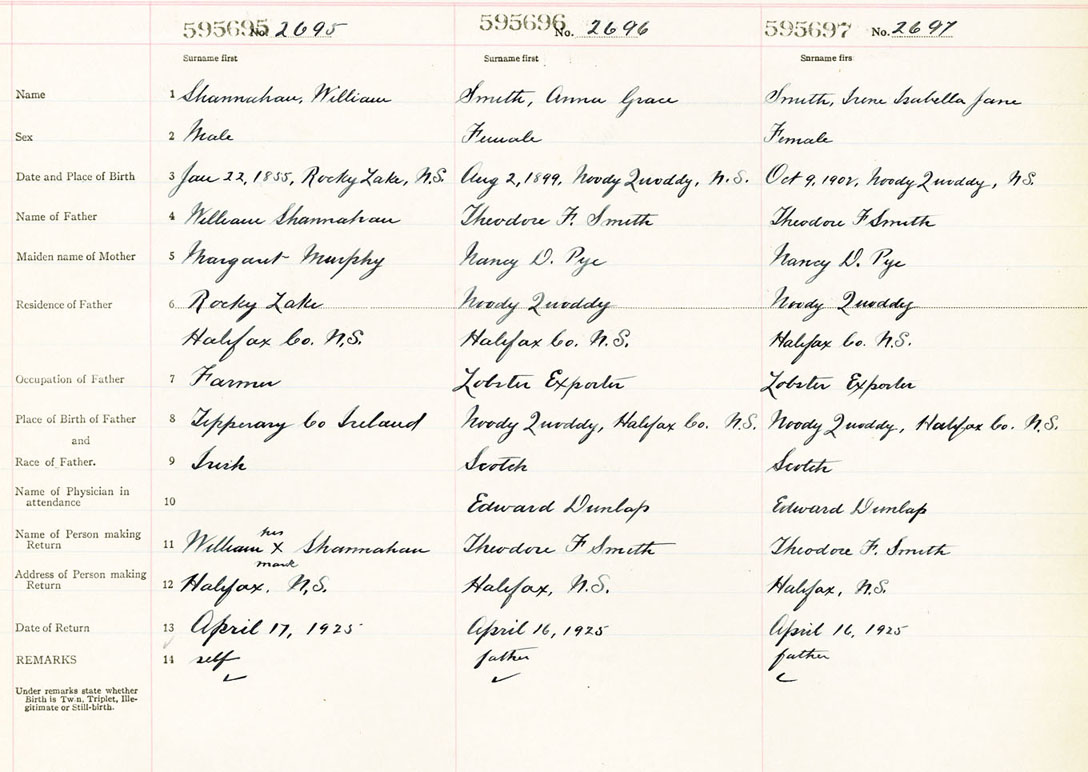 595695 No. 2695 595696 No. 2696 595697 No. 2697
Surname first Surname first Surname firs
Name 1 Shannahan, William Smith, Anna Grace Smith, Irene Isabella Jane
Sex 2 Male Female Female
Date and Place of Birth 3 Jan 22, 1855, Rocky Lake, N.S. Aug 2, 1899, Noody Quoddy, N.S. Oct 9, 1901, Noody Quoddy, N.S.
Name of Father 4 William Shannahan Theodore F. Smith Theodore F Smith
Maiden name of Mother 5 Margaret Murphy Nancy D. Pye Nancy D. Pye
Residence of Father 6 Rocky Lake Noody Quoddy Noody Quoddy
Halifax Co. N.S. Halifax Co. N.S. Halifax Co. N.S.
Occupation of Father 7 Farmer Lobster Exporter Lobster Exporter
Place of Birth of Father 8 Tipperary Co Ireland Noody Quoddy, Halifax Co. N.S. Noody Quoddy, Halifax Co. N.S.
and
Race of Father. 9 Irish Scotch Scotch
Name of Physician in
attendance 10 Edward Dunlap Edward Dunlap
his
Name of Person making
Return 11 William X Shannahan Theodore F Smith Theodore F. Smith
mark
Address of Person making
Return 12 Halifax. N.S. Halifax, N.S. Halifax, N.S.
Date of Return 13 April 17, 1925 April 16, 1925 April 16, 1925
REMARKS 14 self father father
Under remarks state whether
Birth is Twin, Triplet, Ille-
gitimate or Still-birth.